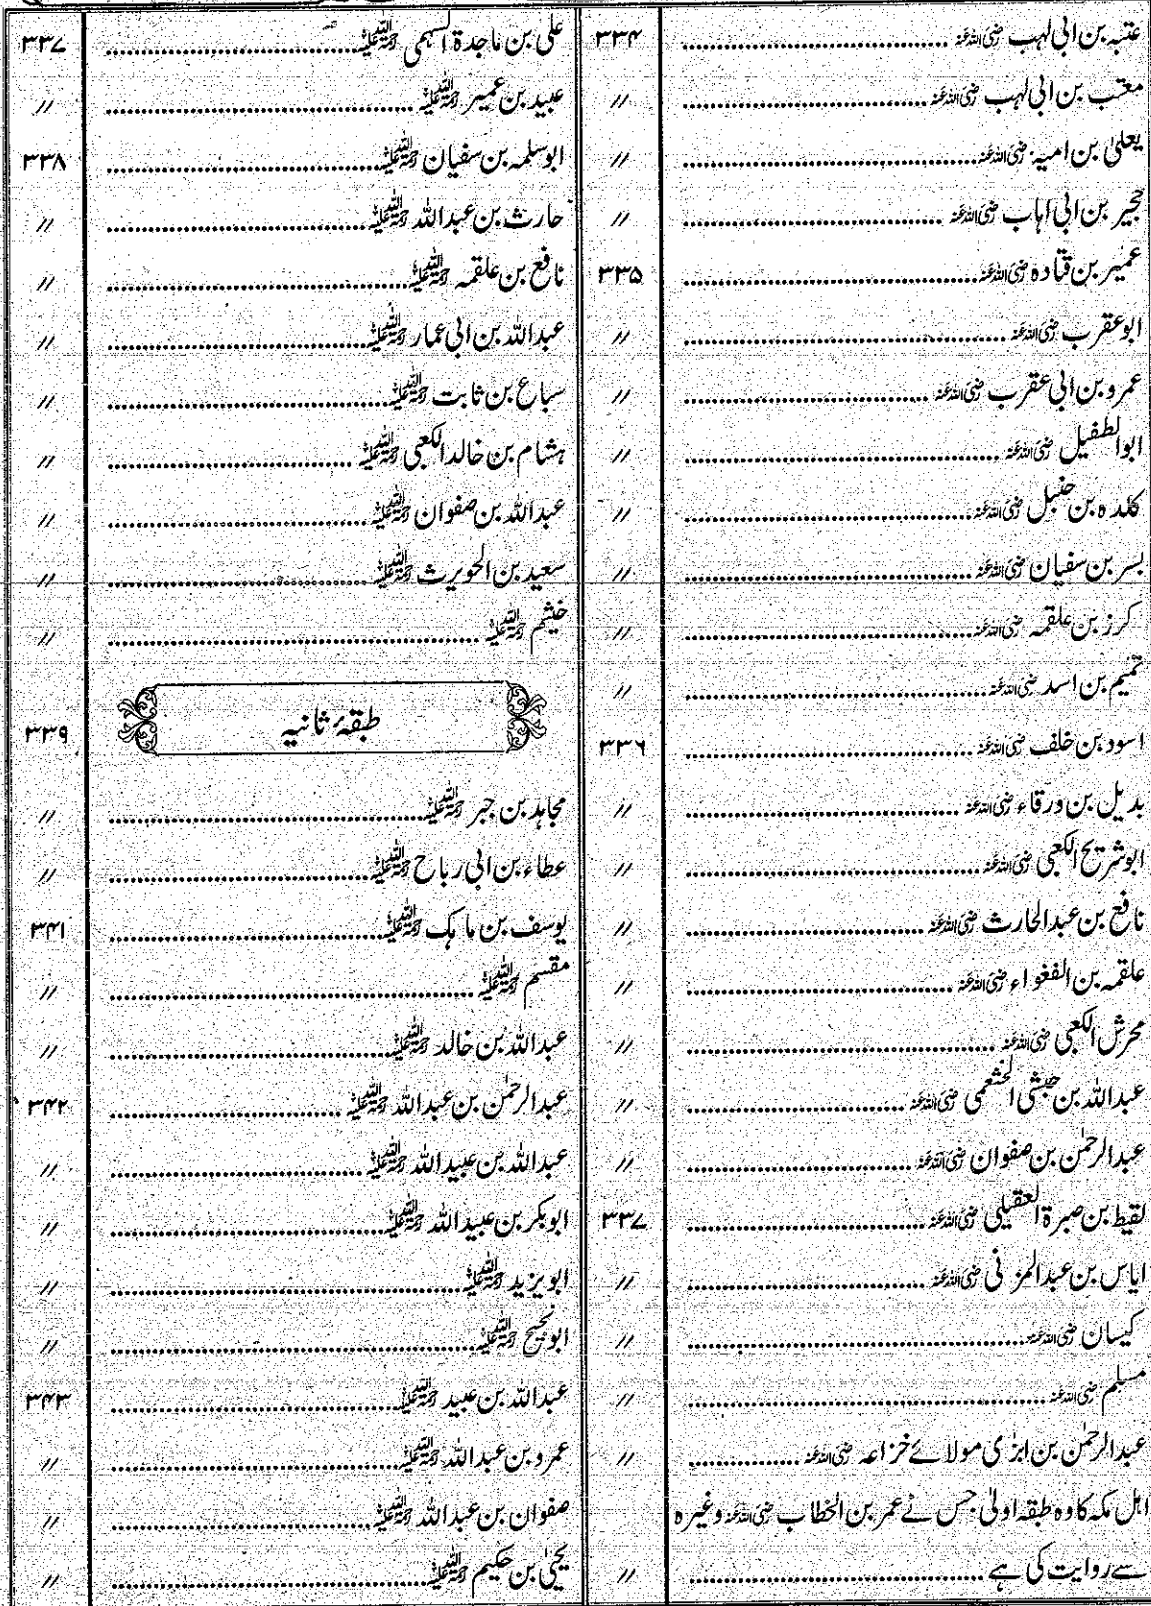 عتبہ بن ابی لہب رضی اللہ عنہ ........ ۳۳۴
معتب بن ابی لہب رضی اللہ عنہ ........ //
یعلیٰ بن امیہ رضی اللہ عنہ ........ //
حجیر بن ابی اہاب رضی اللہ عنہ ........ //
عمیر بن قتادہ رضی اللہ عنہ ........ ۳۳۵
ابوعقرب رضی اللہ عنہ ........ //
عمرو بن ابی عقرب رضی اللہ عنہ ........ //
ابوالطفیل رضی اللہ عنہ ........ //
کلدہ بن حنبل رضی اللہ عنہ ........ //
بسر بن سفیان رضی اللہ عنہ ........ //
کرز بن علقمہ رضی اللہ عنہ ........ //
تمیم بن اسد رضی اللہ عنہ ........ //
اسود بن خلف رضی اللہ عنہ ........ ۳۳۶
بدیل بن ورقاء رضی اللہ عنہ ........ //
ابوشریح الکعبی رضی اللہ عنہ ........ //
نافع بن عبدالحارث رضی اللہ عنہ ........ //
علقمہ بن الفغواء رضی اللہ عنہ ........ //
محرش الکعبی رضی اللہ عنہ ........ //
عبداللہ بن حبشی الخثعمی رضی اللہ عنہ ........ //
عبدالرحمٰن بن صفوان رضی اللہ عنہ ........ //
لقیط بن صبرۃ العقیلی رضی اللہ عنہ ........ ۳۳۷
ایاس بن عبدالمزنی رضی اللہ عنہ ........ //
کیسان رضی اللہ عنہ ........ //
مسلم رضی اللہ عنہ ........ //
عبدالرحمٰن بن ابزی مولائے خزاعہ رضی اللہ عنہ ........ //
اہل مکہ کا وہ طبقہ اولیٰ جس نے عمر بن الخطاب رضی اللہ عنہ وغیرہ
سے روایت کی ہے ........ //
علی بن ماجدۃ السہمی رحمۃ اللہ علیہ ........ ۳۳۷
عبید بن عمیر رحمۃ اللہ علیہ ........ //
ابوسلمہ بن سفیان رحمۃ اللہ علیہ ........ ۳۳۸
حارث بن عبداللہ رحمۃ اللہ علیہ ........ //
نافع بن علقمہ رحمۃ اللہ علیہ ........ //
عبداللہ بن ابی عمار رحمۃ اللہ علیہ ........ //
سباع بن ثابت رحمۃ اللہ علیہ ........ //
ہشام بن خالد الکعبی رحمۃ اللہ علیہ ........ //
عبداللہ بن صفوان رحمۃ اللہ علیہ ........ //
سعید بن الحویرث رحمۃ اللہ علیہ ........ //
خیثم رحمۃ اللہ علیہ ........ //
طبقۂ ثانیہ ۳۳۹
مجاہد بن جبر رحمۃ اللہ علیہ ........ //
عطاء بن ابی رباح رحمۃ اللہ علیہ ........ //
یوسف بن ماہک رحمۃ اللہ علیہ ........ ۳۴۱
مقسم رحمۃ اللہ علیہ ........ //
عبداللہ بن خالد رحمۃ اللہ علیہ ........ //
عبدالرحمٰن بن عبداللہ رحمۃ اللہ علیہ ........ ۳۴۲
عبداللہ بن عبیداللہ رحمۃ اللہ علیہ ........ //
ابوبکر بن عبیداللہ رحمۃ اللہ علیہ ........ //
ابویزید رحمۃ اللہ علیہ ........ //
ابونجیح رحمۃ اللہ علیہ ........ //
عبداللہ بن عبید رحمۃ اللہ علیہ ........ ۳۴۳
عمرو بن عبداللہ رحمۃ اللہ علیہ ........ //
صفوان بن عبداللہ رحمۃ اللہ علیہ ........ //
یحییٰ بن حکیم رحمۃ اللہ علیہ ........ //